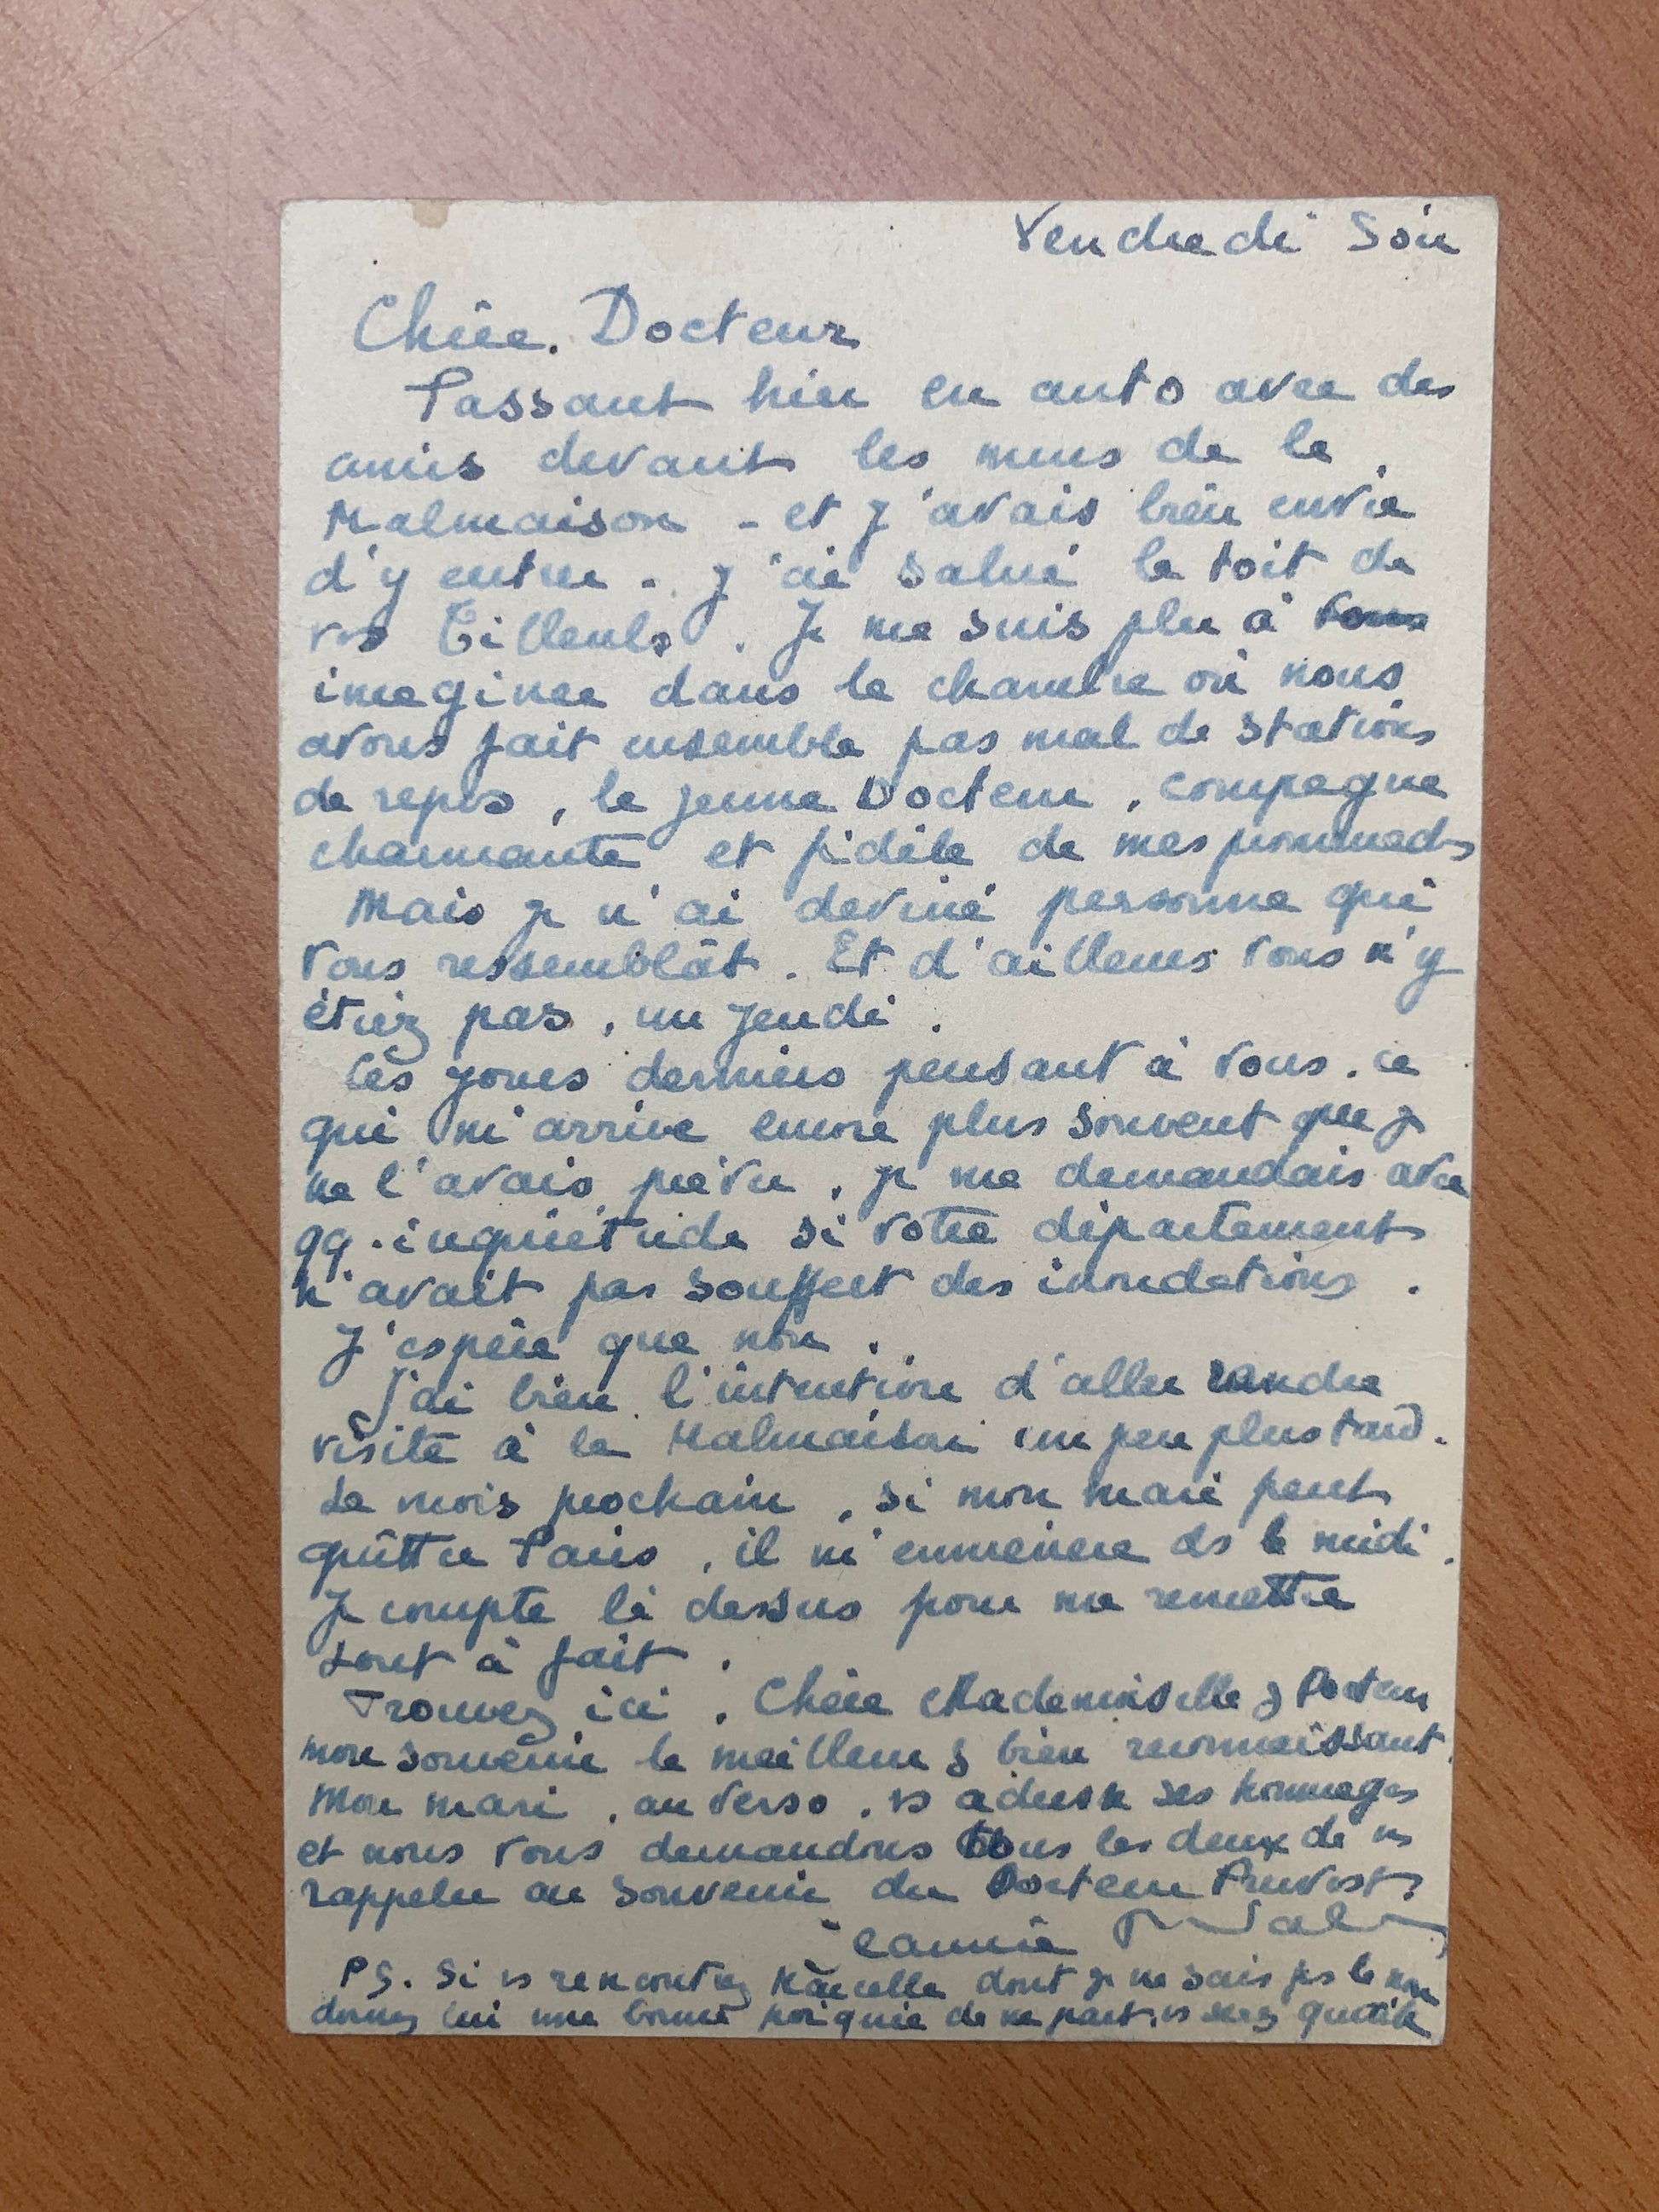 Vendredi Soir
Chère. Docteur
Passant hier en auto avec des
amis devant les murs de la
Malmaison - et j'avais bien envie
d'y entrer - j'ai salué le toit de
vos Tilleuls. Je me suis plu à vous
imaginer dans la chambre où nous
avons fait ensemble pas mal de stations
de repos, le jeune Docteur, compagne
charmante et fidèle de mes promenades
Mais je n'ai deviné personne qui
vous ressemblât. Et d'ailleurs vous n'y
étiez pas, un jeudi.
Ces jours derniers pensant à vous, ce
qui m'arrive encore plus souvent que je
ne l'avais prévu, je me demandais avec
qq. inquiétude si votre département
n'avait pas souffert des inondations.
J'espère que non.
J'ai bien l'intention d'aller rendre
visite à la Malmaison un peu plus tard.
Le mois prochain, si mon mari peut
quitter Paris, il m'emmènera ds le midi.
Je compte là dessus pour me remettre
tout à fait.
Trouvez ici, Chère Mademoiselle & Docteur
mon souvenir le meilleur & bien reconnaissant.
Mon mari, au verso, vs adresse ses hommages
et nous vous demandons tous les deux de ns
rappeler au souvenir du Docteur Pruvost.
PS. Si vs rencontrez Marcelle dont je ne sais pas le nom
donnez lui une bonne poignée de ma part, vs serez gentille